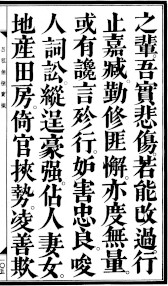 之輩吾實悲傷若能改過行
止嘉臧勤修匪懈亦度無量。
或有讒言矜行妒害忠良唆
人詞訟縱逞豪强佔人妻女。
地產田房倚官挾勢凌善欺